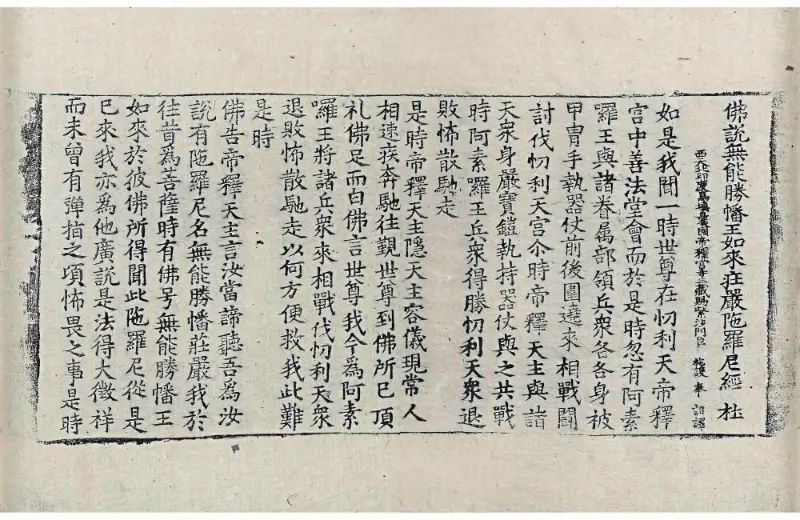 佛說無能勝幡王如來莊嚴陁羅尼經 杜
西天北印度烏塡曩國帝釋宮寺三藏賜紫沙門臣 施護 奉 詔譯
如是我聞一時世尊在忉利天帝釋
宮中善法堂會而於是時忽有阿素
羅王與諸眷属部領兵衆各各身被
甲冑手執器仗前後圍遶來相戰鬬
討伐忉利天宮尒時帝釋天主與諸
天衆身嚴寶鎧執持器仗與之共戰
時阿素囉王兵衆得勝忉利天衆退
敗怖散馳走
是時帝釋天主隱天主容儀現常人
相速疾奔馳往覲世尊到佛所已頂
礼佛足而白佛言世尊我今爲阿素
囉王將諸兵衆來相戰伐忉利天衆
退敗怖散馳走以何方便救我此難
是時
佛告帝釋天主言汝當諦聽吾爲汝
說有陁羅尼名無能勝幡莊嚴我於
往昔爲菩薩時有佛号無能勝幡王
如來於彼佛所得聞此陁羅尼從是
已來我亦爲他廣說是法得大徵祥
而未曾有彈指之頃怖畏之事是時